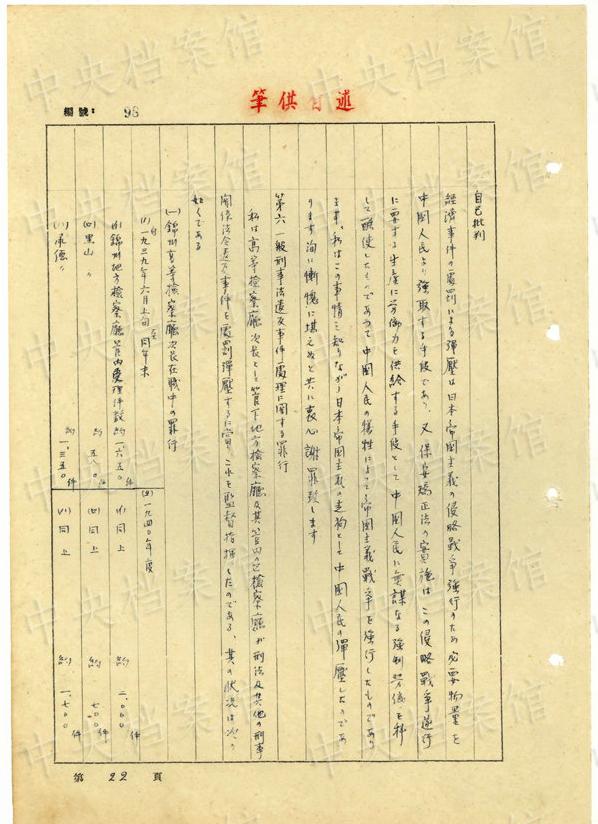 述自供筆
編號: 98
自己批判
経済事件の處罰による彈壓は日本帝国主義の侵略戰争強行のため必要物量を
中國人民より強取する手段であり、又保安矯正法の實施はこの侵略戰争遂行
に要する生産に労働力を供給する手段として中國人民に無謀なる強制労働を科
して酷使したものであつて中國人民の犠牲によつて帝国主義戰争を強行したものであり
ます、私はこの事情を知りながら日本帝国主義の走狗として中國人民の彈壓したのであ
ります洵に慚愧に堪えぬと共に衷心謝罪致します
第六 一般刑事法違反事件處理に関する罪行
私は高等検察廳次長として管下地方検察廳及其管内の区検察廳が刑法及其他の刑事
関係法令違反事件を處罰彈壓するに當りこれを監督指揮したのである、其の状況は次の
如くである
(一) 錦州高等検察廳次長在職中の罪行
(1) 自一九三九年六月上旬至同年末
(イ) 錦州地方検察廳管内受理件数 約一、六五〇件
(ロ) 黒山 〃 約五八〇件
(ハ) 承德 〃 約一、三五〇件
(2) 一九四〇年度
(イ) 同上 約二、〇〇〇件
(ロ) 同上 約七〇〇件
(ハ) 同上 約一、七〇〇件
第 22 頁
中央档案馆